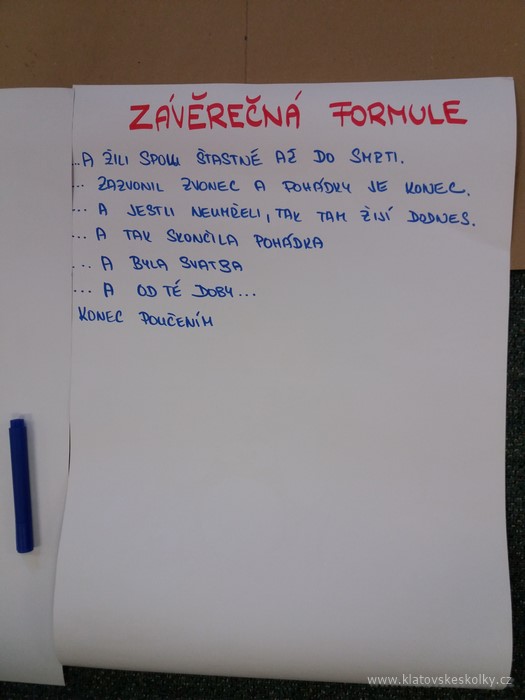 ZÁVĚREČNÁ FORMULE
...A ŽILI SPOLU ŠTASTNĚ AŽ DO SMRTI.
... ZAZVONIL ZVONEC A POHÁDKY JE KONEC.
... A JESTLI NEUMŘELI, TAK TAM ŽIJÍ DODNES.
... A TAK SKONČILA POHÁDKA
... A BYLA SVATBA
... A OD TÉ DOBY...
KONEC POUČENÍM
www.klatovskeskolky.cz